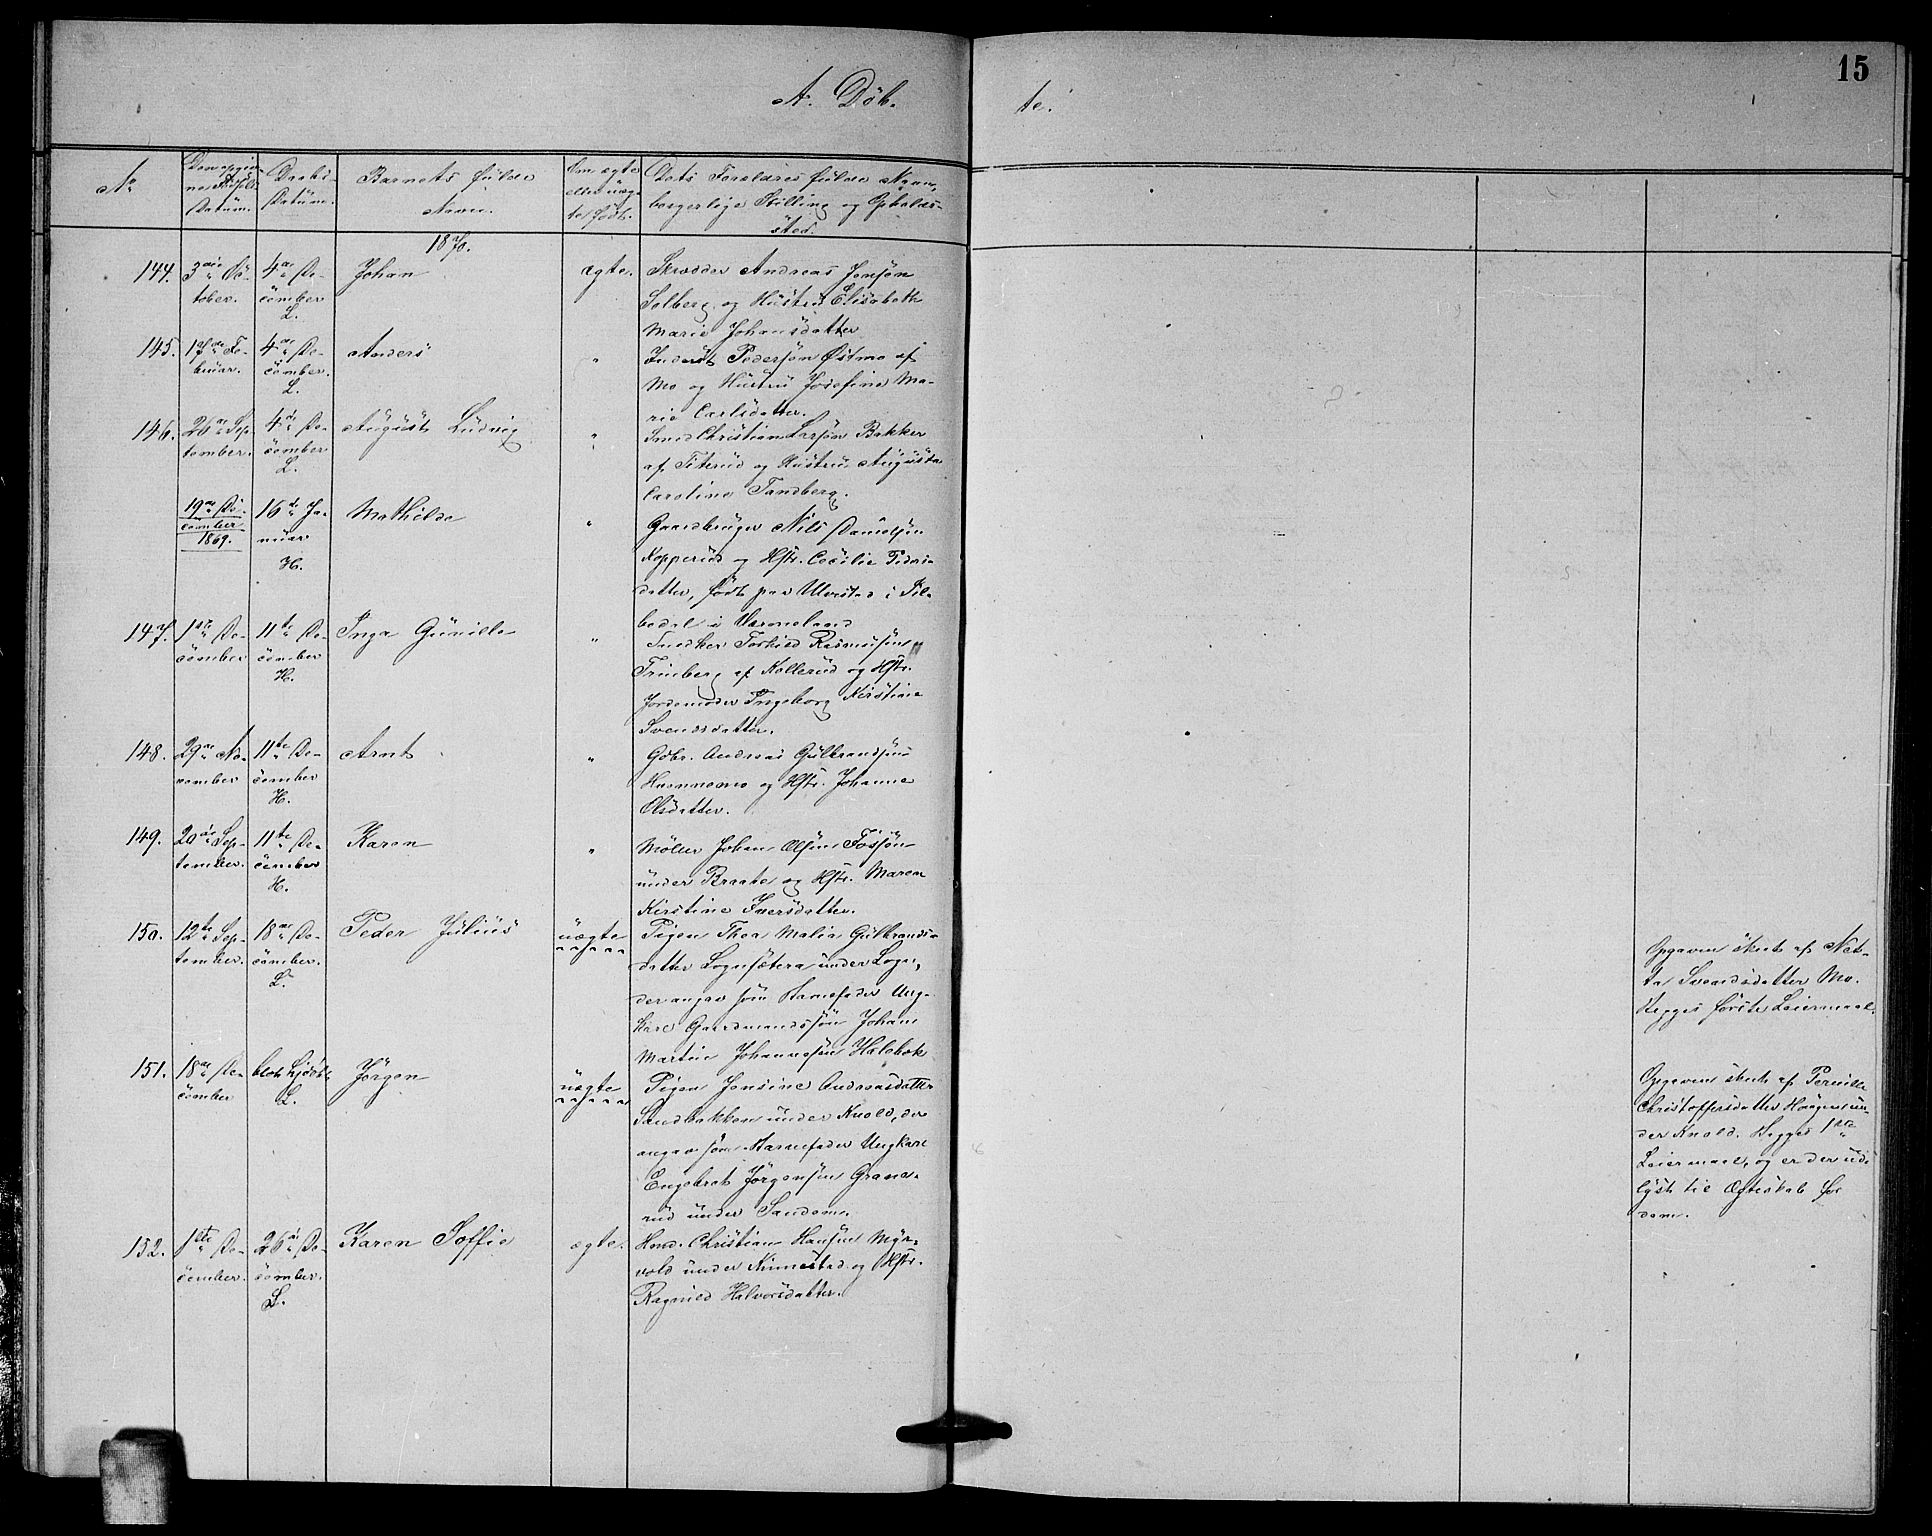 15
A. Døb- te.
No
Den opgiv-
ne Fødsels-
Datum.
Daabs-
Datum.
Barnets fulde
Navn.
Om ægte
eller uæg-
te født.
Dets Forældres fulde Navn,
borgerlige Stilling og Opholds-
sted.
1870.
144. 3die Oc-
tober.
4de De-
cember
L.
Johan
ægte.
Skrædder Andreas Jensøn
Solberg og Hustru Elisabeth
Marie Johansdatter
145. 17de Fe-
bruar.
4de De-
cember.
L.
Anders
"
Inderst Pedersøn Østmo af
Mo og Hustru Josefine Ma-
rie Carlsdatter.
146. 26de Sep-
tember.
4de De-
cember
L.
August Ludvig
"
Smed Christian Larsøn Bakker
af Titerud og Hustru Augusta
Caroline Tandberg.
19de De-
cember
1869.
16de Ja-
nuar
H.
Mathilde
"
Gaardbruger Nils Danielsøn
Kopperud og Hstr. Cecilie Peders-
datter, født paa Ulvestad i Sil-
bodal i Värmeland
147. 1ste De-
cember
11te De-
cember
H.
Inga Gunille
"
Snedker Torkild Rasmussøn
Trinberg af Kollerud og Hstr.
Jordemoder Ingeborg Kirstine
Svendsdatter.
148. 29de No-
vember
11te De-
cember
H.
Arnt
"
Gdbr. Andreas Gulbrandsøn
Haennemo og Hstr. Johanne
Olsdatter.
149. 20de Sep-
tember.
11te De-
cember
H.
Karen
"
Møller Johan Olsen Fossøn
under Braate og Hstr. Maren
Kirstine Iversdatter.
150. 12te Sep-
tember.
18de De-
cember.
L.
Peder Julius
uægte
Pigen Thea Malia Gulbrands-
datter Lognsætera under Logn,
der angav som Barnefader Ung-
karl Gaardmandssøn Johan
Martin Johannesøn Holebok
Opgaven skeet af Net-
ta Svendsdatter Mo.
Begges første Leiermaal.
151. 18de De-
cember
blot hjdøbt
L.
Jörgen
uægte
Pigen Jensine Andreasdatter
Sandbakken under Knold, der
angav som Barnefader Ungkarl
Engebret Jörgensøn Grane-
rud under Sandom.
Opgaven skeet af Pernille
Christoffersdatter Haugen un-
der Knold. Begges 1ste
Leiermaal, og er der ud-
lyst til Ægteskab for
dem.
152. 1ste De-
cember.
26de De-
cember.
L.
Karen Soffie
ægte.
Hmd. Christian Hansen Myr-
vold under Kinnestad og Hstr.
Ragnild Halvorsdatter.